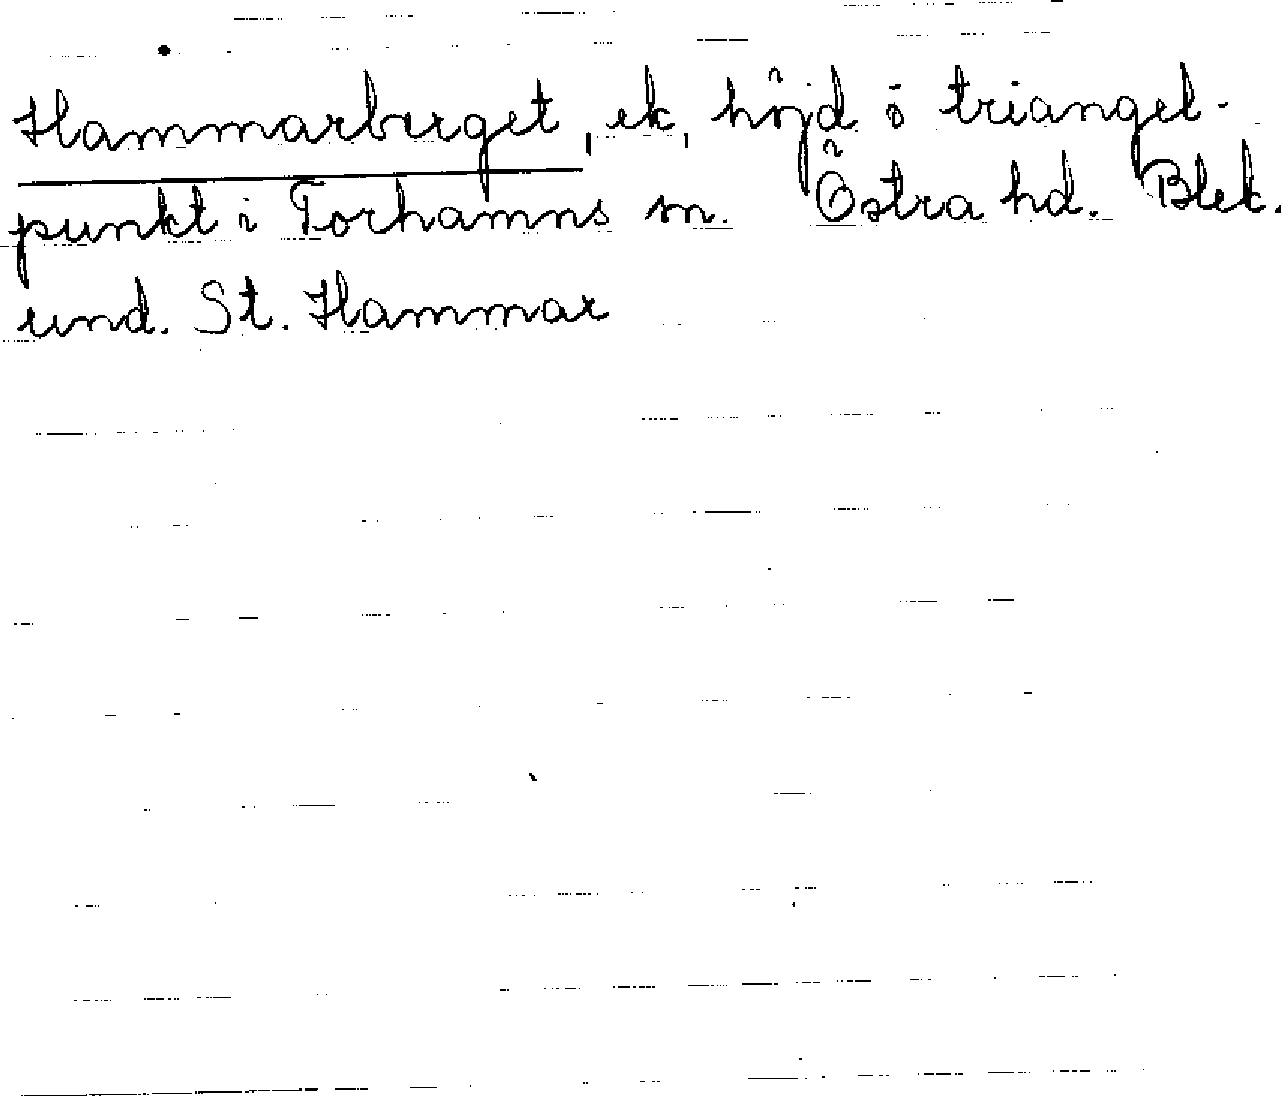 Hammarberget, ek, höjd ö triangel-
punkt i Torhamns sn. Östra hd. Blek.
und. St. Hammar